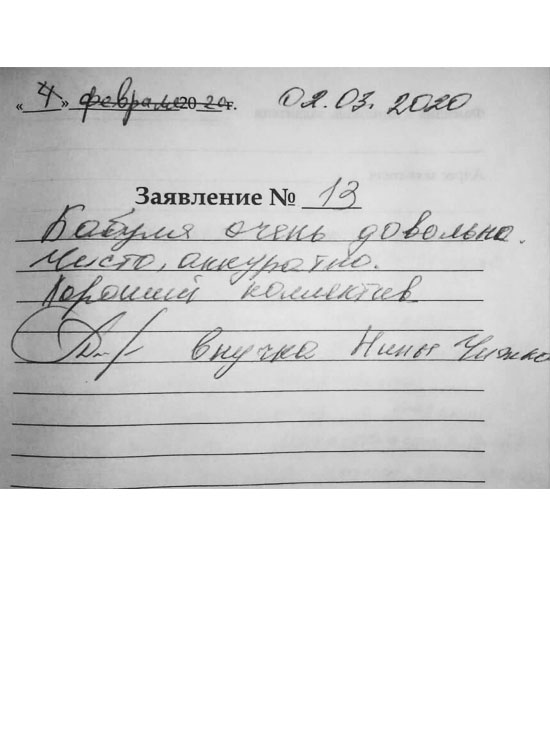 «4» февраля 2020 г. 02.03.2020
Заявление № 13
Бабуля очень довольна.
Чисто, аккуратно.
Хороший коллектив
внучка Нины